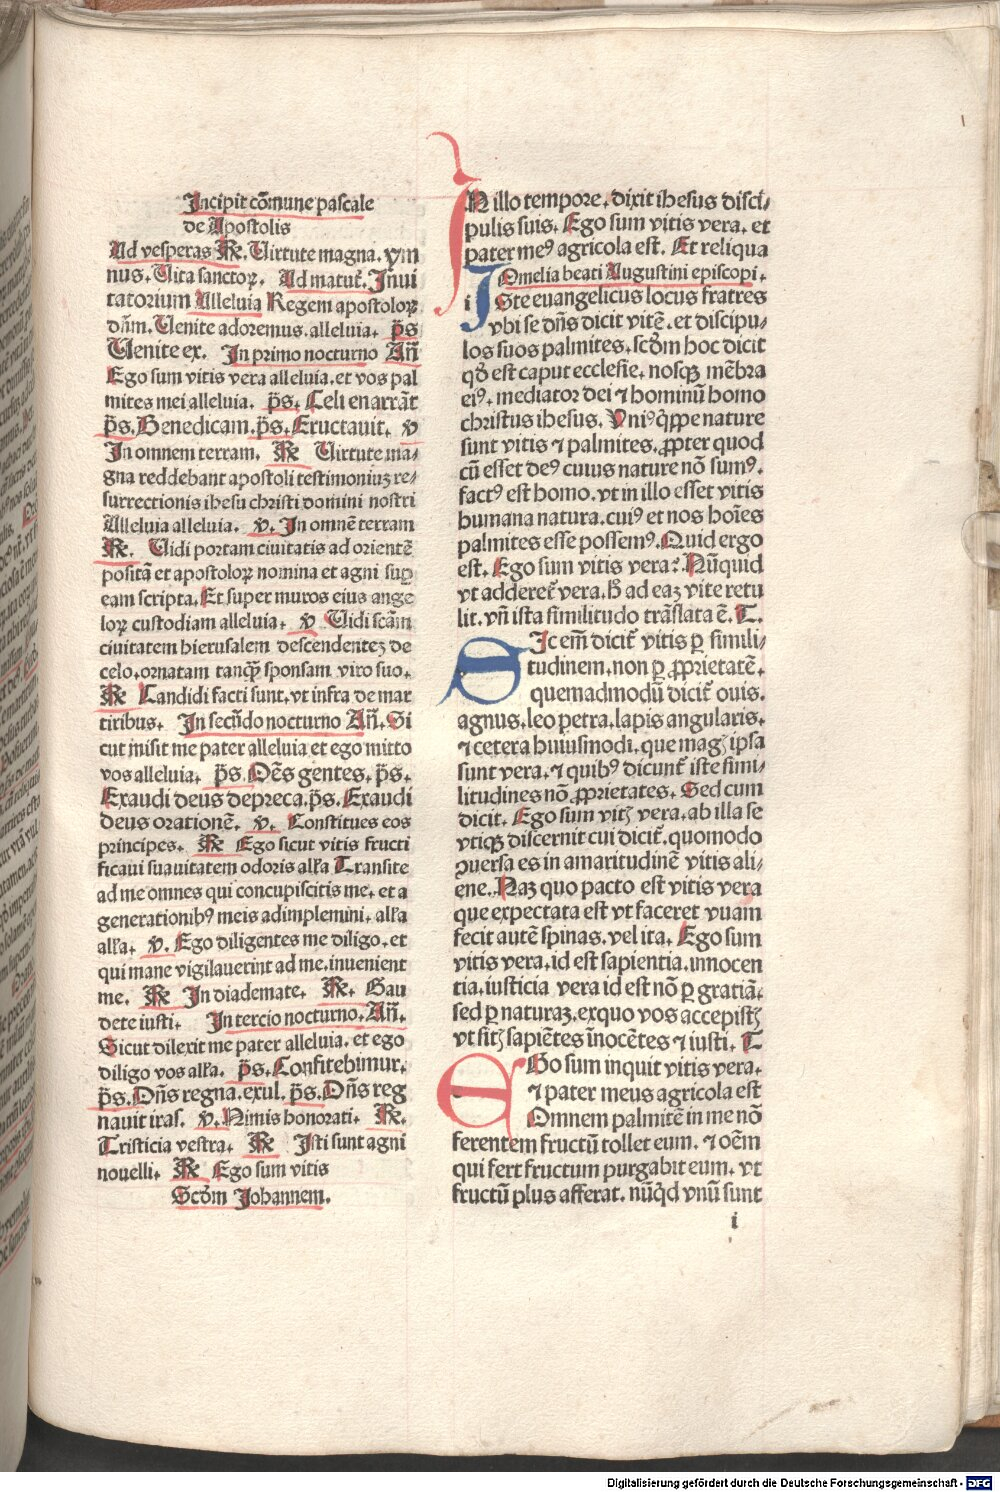 Incipit cōmune pascale
de Apostolis
Ad vesperas R̄. Uirtute magna. ym
nus. Uita sanctoꝝ. Ad matut̄. Inui
tatorium Alleluia Regem apostoloꝝ
dn̄m. Uenite adoremus. alleluia. p̄s
Uenite ex. In primo nocturno An̄
Ego sum vitis vera alleluia. et vos pal
mites mei alleluia. p̄s. Celi enarrāt
p̄s. Benedicam. p̄s. Eructauit. v̄
In omnem terram. R̄ Uirtute ma⸗
gna reddebant apostoli testimoniuꝫ re⸗
surrectionis ihesu christi domini nostri
Alleluia alleluia. v̄. In omnē terram
R̄. Uidi portam ciuitatis ad orientē
positā et apostoloꝝ nomina et agni suꝑ
eam scripta. Et super muros eius ange
loꝝ custodiam alleluia. v̄ Uidi scām
ciuitatem hierusalem descendenteꝫ de
celo. ornatam tanqꝫ sponsam viro suo.
R̄ Candidi facti sunt. vt infra de mar
tiribus. In secūdo nocturno An̄. Si
cut misit me pater alleluia et ego mitto
vos alleluia. p̄s. Om̄s gentes. p̄s.
Exaudi deus depreca. p̄s. Exaudi
deus orationē. v̄. Constitues eos
principes. R̄ Ego sicut vitis fructi
ficaui suauitatem odoris all'a Transite
ad me omnes qui concupiscitis me. et a
generationibꝰ meis adimplemini. all'a
all'a. v̄. Ego diligentes me diligo. et
qui mane vigilauerint ad me. inuenient
me. R̄ In diademate. R̄. Gau
dete iusti. In tercio nocturno. An̄.
Sicut dilexit me pater alleluia. et ego
diligo vos all'a. p̄s. Confitebimur.
p̄s. Dn̄s regna. exul. p̄s. Dn̄s reg
nauit iras. v̄. Nimis honorati. R̄.
Tristicia vestra. R̄ Isti sunt agni
nouelli. R̄ Ego sum vitis
Scd̄m Johannem.
IN illo tempore. dixit ihesus disci⸗
pulis suis. Ego sum vitis vera. et
pater meꝰ agricola est. Et reliqua
Omelia beati Augustini episcopi.
i ISte euangelicus locus fratres
vbi se dn̄s dicit vitē. et discipu⸗
los suos palmites. scd̄m hoc dicit
qd̄ est caput ecclesie. nosqꝫ mēbra
eiꝰ. mediator dei ⁊ hominū homo
christus ihesus. Vniꝰ q̄ppe nature
sunt vitis ⁊ palmites. ꝓpter quod
cū esset deꝰ cuius nature nō sumꝰ.
factꝰ est homo. vt in illo esset vitis
humana natura. cuiꝰ et nos hoīes
palmites esse possemꝰ. Quid ergo
est. Ego sum vitis vera? Nūquid
vt adderet̄ vera. h̄ ad eaꝫ vite retu
lit. vn̄ ista similitudo trāslata ē. T.
SIc em̄ dicit̄ vitis ꝑ simili⸗
tudinem. non ꝑ ꝓprietatē.
quemadmodū dicit̄ ouis.
agnus. leo petra. lapis angularis.
⁊ cetera huiusmodi. que magꝭ ipsa
sunt vera. ⁊ quibꝰ dicunt̄ iste simi⸗
litudines nō ꝓprietates. Sed cum
dicit. Ego sum vitꝭ vera. ab illa se
vtiqꝫ discernit cui dicit̄. quomodo
ꝯuersa es in amaritudinē vitis ali⸗
ene. Naꝫ quo pacto est vitis vera
que expectata est vt faceret vuam
fecit autē spinas. vel ita. Ego sum
vitis vera. id est sapientia. innocen
tia. iusticia vera id est nō ꝑ gratiā.
sed ꝑ naturaꝫ. ex quo vos accepistꝭ
vt sitꝭ sapiētes īnocētes ⁊ iusti. T
EGo sum inquit vitis vera.
⁊ pater meus agricola est
Omnem palmitē in me nō
ferentem fructū tollet eum. ⁊ oēm
qui fert fructum purgabit eum. vt
fructū plus afferat. nūqd̄ vnū sunt
i
Digitalisierung gefördert durch die Deutsche Forschungsgemeinschaft - DFG